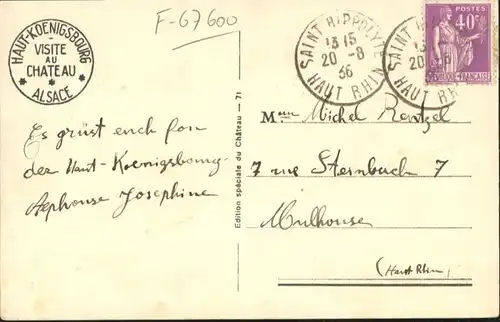 F-67600
HAUT-KOENIGSBOURG
VISITE
AU
CHÂTEAU
* ALSACE *
SAINT HIPPOLYTE
13 15
20 - 8
36
HAUT RHIN
SAINT H
13
20
HAUT RHIN
POSTES
40c
Es grüst euch fon
der Haut-Koenigsbourg
Alphonse Josephine
Edition spéciale du Château — 71
Mme Michel Rentzel
7 rue Sternbuch 7
Mulhouse
(Haut Rhin)